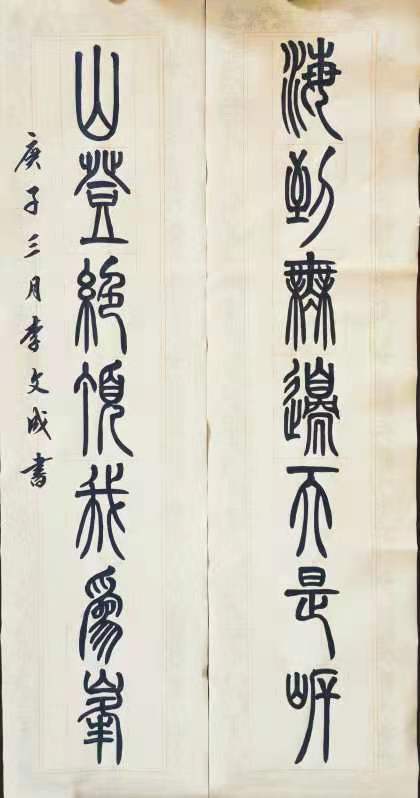 海到無邊天是岸
山登絕頂我為峯
庚子三月李文成書